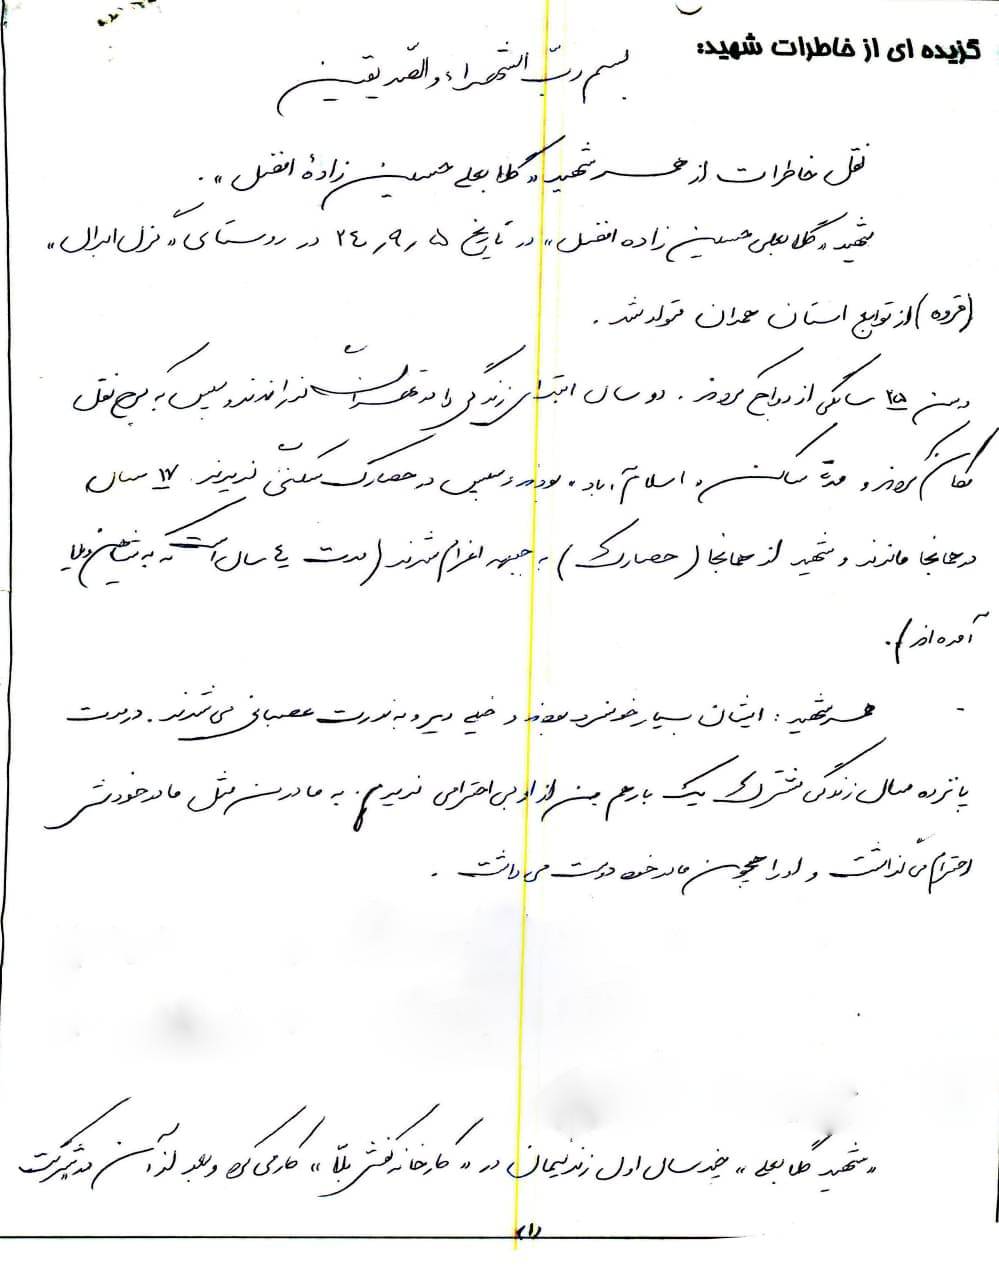 گزیده ای از خاطرات شهید:
بسم ربّ الشهداء و الصّدیقین
نقل خاطرات از همسر شهید «گلابعلی حسین زادۀ افضل».
شهید «گلابعلی حسین زاده افضل» در تاریخ ۲۴٫۹٫۵ در روستای «قزل ابدال»
(قروه) از توابع استان همدان متولد شد.
در سن ۲۵ سالگی ازدواج کردند. دو سال ابتدای زندگی را در تهران گذراندند و سپس به کرج نقل
مکان کردند و مدتی ساکن «اسلام آباد» بودند و سپس در حصارک سکنی گزیدند. ۱۷ سال
در همانجا ماندند و شهید از همانجا (حصارک) به جبهه اعزام شدند (مدت ۴ سال است که به شاهین ویلا
آمده اند).
- همسر شهید: ایشان بسیار خونسرد بودند و خیلی دیر و به ندرت عصبانی می شدند. در مدت
پانزده سال زندگی مشترک یک بار هم من از او بی احترامی ندیدم. به مادر من مثل مادر خودش
احترام می گذاشت و او را همچون مادر خود دوست می داشت.
«شهید گلابعلی» چند سال اول زندگیمان در «کارخانه کفش بلّا» کار می کرد و بعد از آن در شرکت
(۱)